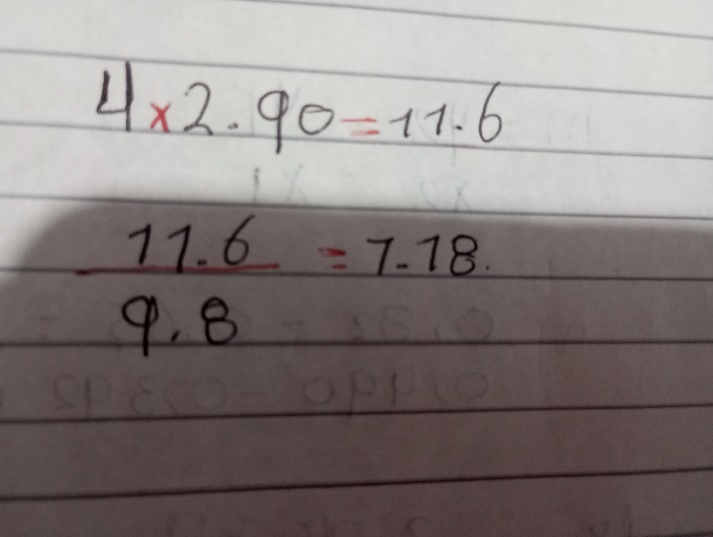 4 × 2.90 = 11.6
11.6 / 9.8 = 1.18.